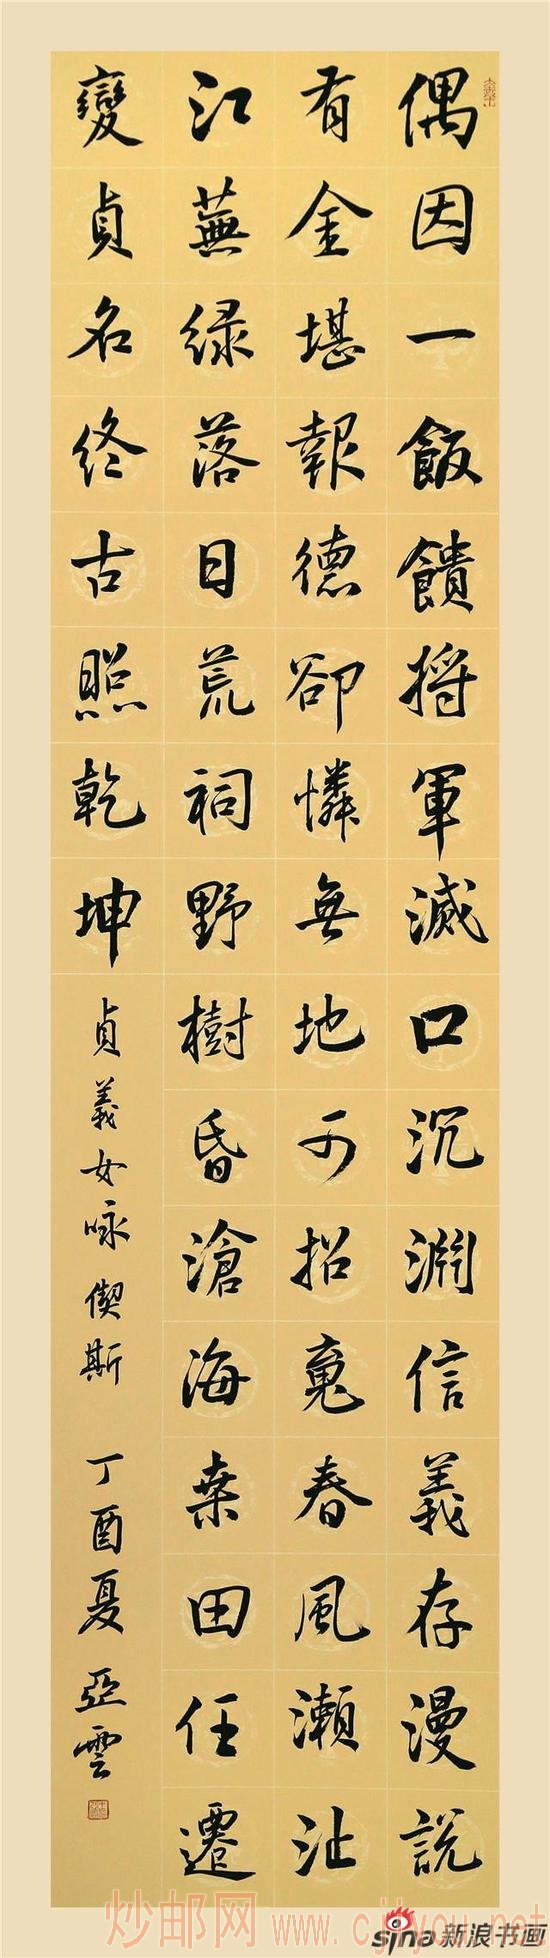 偶因一飯饋将軍滅口沉淵信義存漫説
有金堪報德卻憐無地可招䰟春風瀬沚
江蕪緑落日荒祠野樹昏滄海桒田任遷
變貞名終古照乾坤
貞義女咏偰斯 丁酉夏 亞雲
炒邮网 www.cjiyou.net
sina 新浪书画